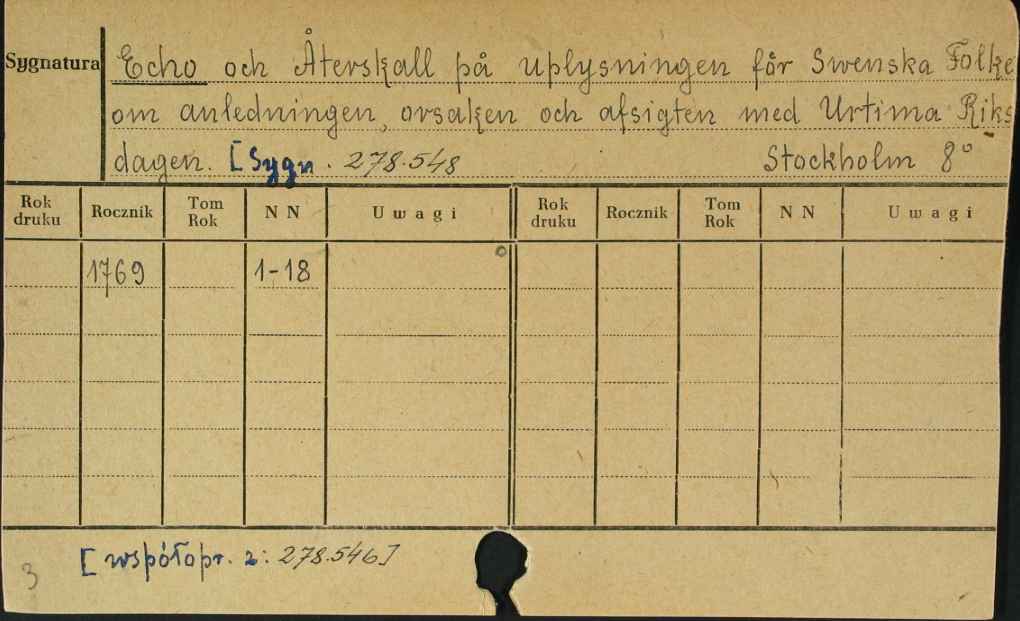 Sygnatura
Echo och Återskall på uplysningen för Swenska Folke
om anledningen, orsaken och afsigten med Urtima Riks
dagen. [Sygn. 278.548 Stockholm 8°
Rok druku Rocznik Tom Rok NN Uwagi Rok druku Rocznik Tom Rok NN Uwagi
1769 1-18
[współopr. z: 278.546]
3